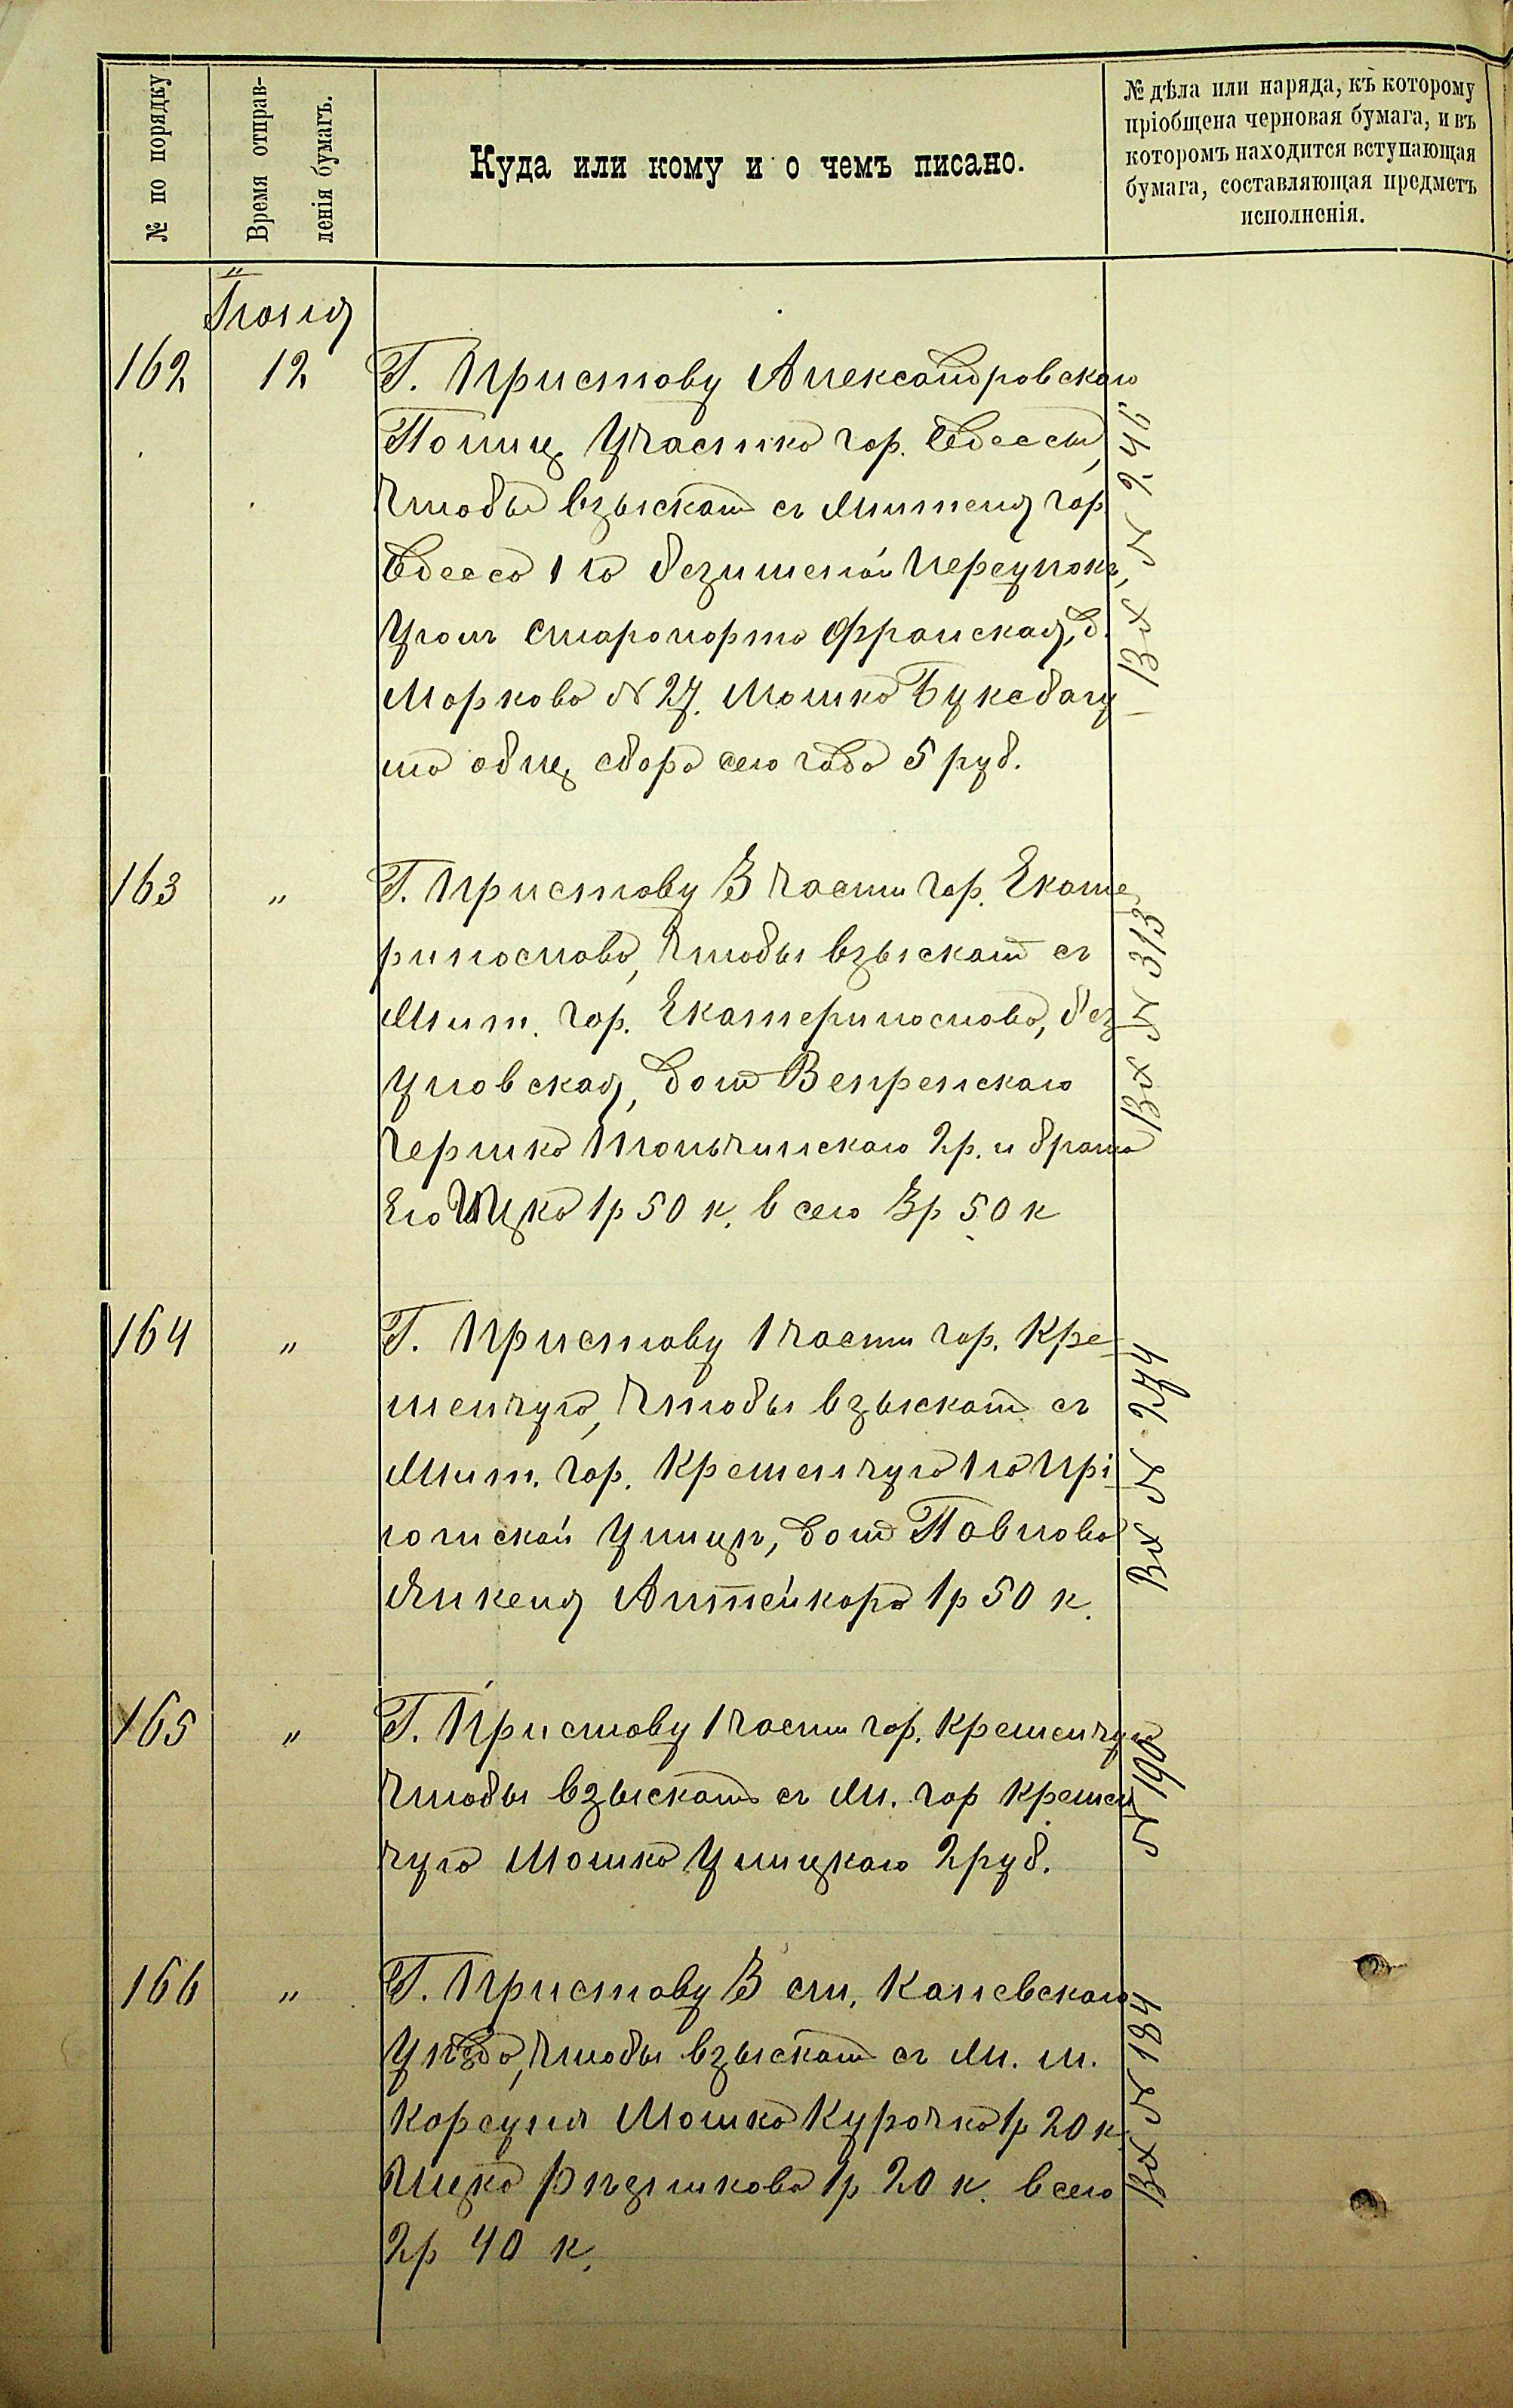 № по порядку
Время отправ-
ленія бумагъ.
Куда или кому и о чемъ писано.
№ дѣла или наряда, къ которому
пріобщена черновая бумага, и въ
которомъ находится вступающая
бумага, составляющая предметъ
исполненія.
Іюня
162 12 Г. Приставу Александровскаго
Полиц. Участка гор. Одессы,
чтобы взыскать съ жителя гор
Одесса 1го безименой переулокъ,
уголъ Старопорто Франская, д.
Маркова № 27. Мошка Буксба
на общ. сбора сего года 5 руб.
Вх № 246
163 " Г. Приставу 3 части гор. Екате
ринослава, чтобы взыскать съ
жит. гор. Екатеринослава,
домъ Венренскаго
Гершка Тольчинскаго 2р. и брата
его Ицка 1р 50 к. всего 3р 50 к
Вх № 313
164 " Г. Приставу 1 части гор. Кре-
менчуга, чтобы взыскать съ
жит. гор. Кременчуга
улицѣ, домъ Павлова
Янкеля 1р 50 к.
Вх № 274
165 " Г. Приставу 1 части гор. Кременчуга
чтобы взыскать съ ж. гор Кремен
чуга Мошка Улицкаго 2 руб.
№ 190
166 " Г. Приставу 3 ст. Каневскаго
Уѣзда, чтобы взыскать съ ж. м.
Корсуня Мошка Курочка 1р 20 к.
Ицка Рѣзникова 1р 20 к. всего
2р 40 к.
Вх № 184